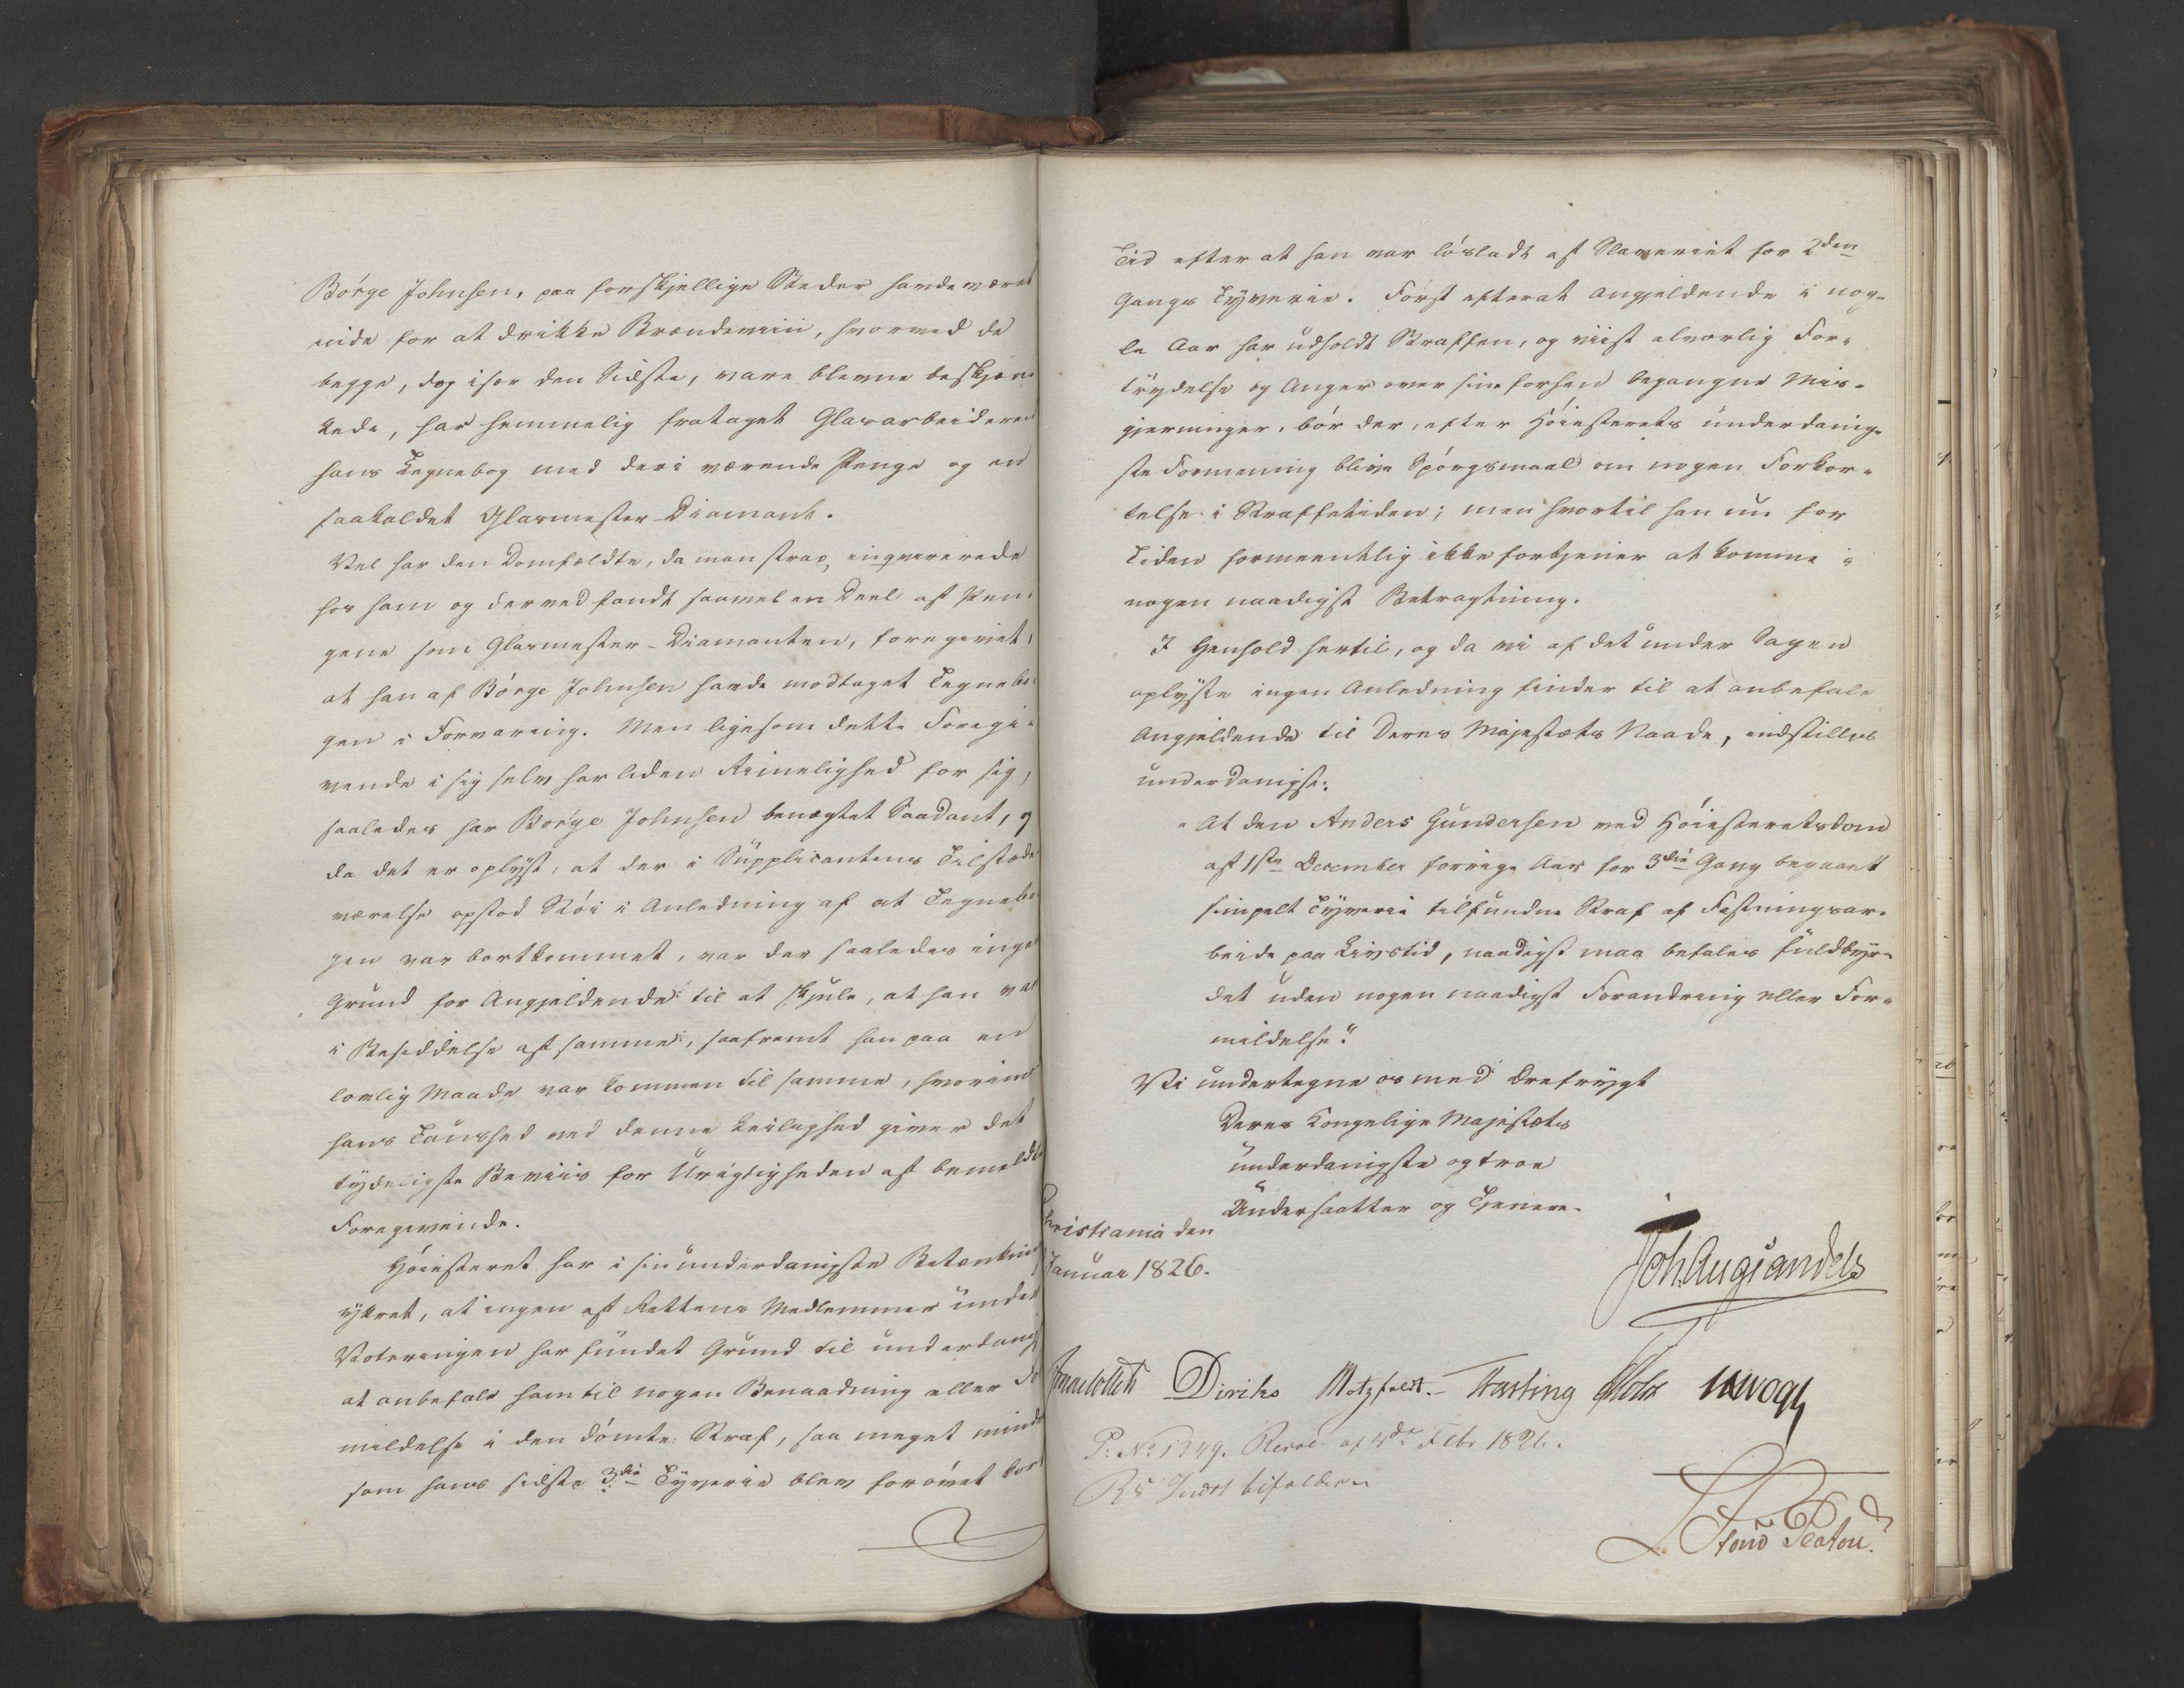 Börge Johnsen, paa forskjellige Steder havde været
inde for at drikke Brændeviin, hvorved de
begge, dog især den Sidste, vare blevne beskjæn-
kede, har hemmelig frataget Glasarbeideren
hans Tegnebog med deri værende Penge og en
saakaldet Glasmester-Diamant.
Vel har den Domfældte, da man strax inqvirerede
hos ham og derved fandt saavel en Deel af Pen-
gene som Glasmester-Diamanten, foregivet,
at han af Börge Johnsen havde modtaget Tegnebo-
gen i Forvaring. Men ligesom dette Foregi-
vende i sig selv har liden Rimelighed for sig,
saaledes har Börge Johnsen benægtet Saadant, og
da det er oplyst, at der i Supplicantens Tilstæde-
værelse opstod Støi i Anledning af at Tegnebo-
gen var bortkommet, var der saaledes ingen
Grund for Angjeldende til at skjule, at han var
i Besiddelse af samme, saafremt han paa en
lovlig Maade var kommen til samme, hvorimod
hans Taushed ved denne Leilighed giver det
tydeligste Beviis for Urigtigheden af bemeldte
Foregivende.
Höiesteret har i sin underdanigste Betænkning
yttret, at ingen af Rettens Medlemmer under
Voteringen har fundet Grund til underdanigst
at anbefale ham til nogen Benaadning eller For
mildelse i den dömte Straf, saa meget mindre
som hans sidste 3die Tyverie blev forövet kort
Tid efter at han var lösladt af Slaveriet for 2den
Gangs Tyverie. Först efterat Angjeldende i nog-
le Aar har udholdt Straffen, og viist alvorlig For-
trydelse og Anger over sine forhen begangne Mis-
gjerninger, bör der, efter Höiesterets underdanig-
ste Formening blive Spörgsmaal om nogen Forkor-
telse i Straffetiden; men hvortil han nu for
Tiden formeentlig ikke fortjener at komme i
nogen naadigst Betragtning.
I Henhold hertil, og da vi af det under Sagen
oplyste ingen Anledning finder til at anbefale
Angjeldende til Deres Majestæts Naade, indstilles
underdanigst:
"At den Anders Gundersen ved Höiesteretsdom
af 1ste December forrige Aar for 3die Gang begaaet
simpelt Tyverie tilfundne Straf af Fæstningsar-
beide paa Livstid, naadigst maa befales fuldbyr-
det uden nogen naadigst Forandring eller For-
mildelse."
Vi undertegne os med Ærefrygt
Deres Kongelige Majestæts
underdanigste og troe
Undersaatter og Tjenere.
Christiania den
Januar 1826.
Joh. Aug: Sandels
Collett Diriks Motzfeldt. Fasting Holst
P: No 1349. Resol. af 4de Feb. 1826.
Rs Indst bifaldes